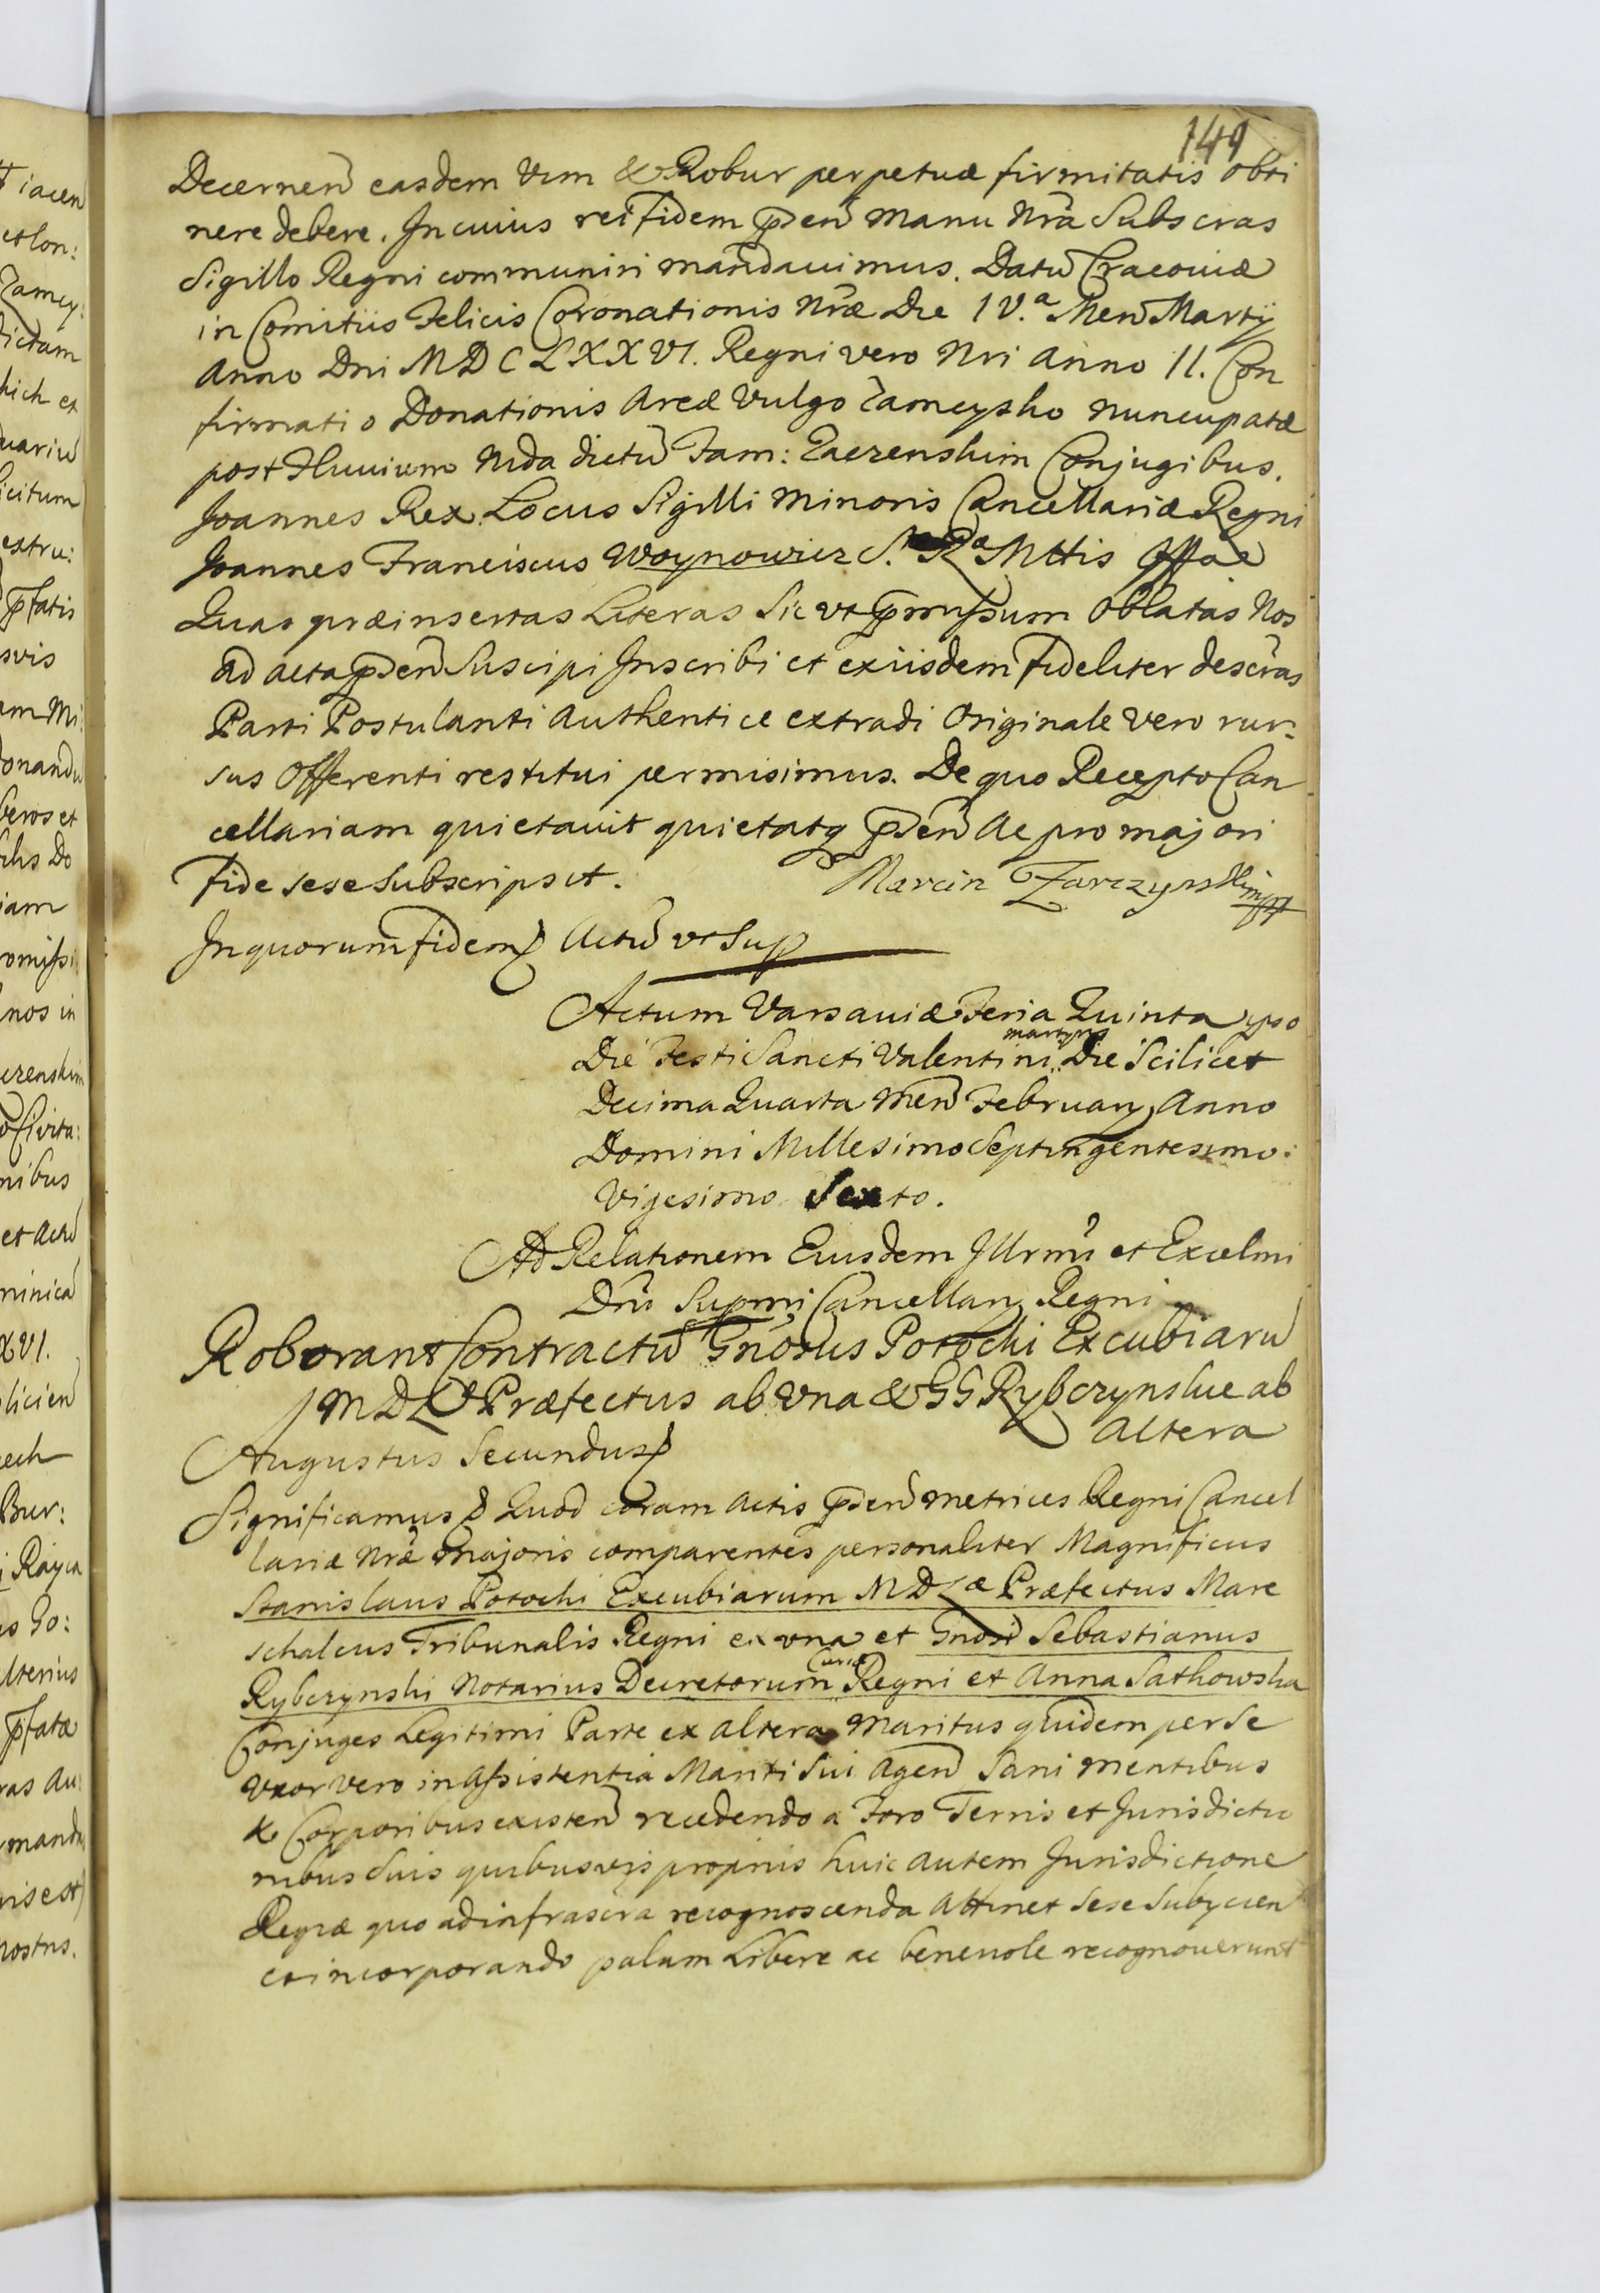 149
Decernen easdem Vim & Robur perpetuæ firmitatis obti
nere debere. In cuius rei fidem pden manu Nra Subscras
Sigillo Regni communiri mandauimus. Datu Cracouiæ
in Comitiis Felicis Coronationis Nræ Die IV.a Men Martij
Anno Dni MDCLXXVI. Regni vero Nri Anno II. Con
firmatio Donationis Areæ Vulgo Zameysko nuncupatæ
post Fluuium Nida dictu Fam: Conjugibus.
Joannes Rex. Locus Sigilli minoris Cancellariæ Regni
Joannes Franciscus Woynowicz S. Ræ Mttis
Quas præinsertas Literas Sic vt pmissum Oblatas Nos
ad acta pden Suscipi Inscribi et exiisdem fideliter descras
Parti Postulanti Authentice extradi Originale Vero rur=
sus Offerenti restitui permisimus. De quo Recepto Can
cellariam quietauit quietatq pden Ac pro majori
fide sese Subscripsit. Marcin mpp
In quorum fidem Actu vt Sup
Actum Varsauiæ Feria Quinta ipso
Die Festi Sancti Valentini martyris Die Scilicet
Decima Quarta Men February Anno
Domini Millesimo Septingentesimo:
Vigesimo Sexto.
Ad Relationem Eiusdem Illrmi et Excelmi
Dni Supmi Cancellary Regni
Roborant Contractu Gnosus Potocki Excubiaru
MDL Præfectus ab Vna & GG Rybczynskie ab
Altera
Augustus Secundus
Significamus Quod coram Actis pden metrices Regni Cancel
lariæ Nræ Majoris comparentes personaliter Magnificus
Stanislaus Potocki Excubiarum MDLæ Præfectus Mare
schalcus Tribunalis Regni ex vna et Gnosi Sebastianus
Rybczynski Notarius Decretorum Curiæ Regni et Anna Sathowska
Conjuges Legitimi Parte ex altera Maritus quidem per se
Vxor Vero in Assistentia Mariti Sui Agen Sani mentibus
& Corporibus existen recedendo a Foro Terris et Jurisdictio
nibus Suis quibusvis propriis huic autem Jurisdictione
Regiæ quo ad infrascra recognoscenda Attinet Sese Subycien
et incorporando palam Libere ac beneuole recognouerunt